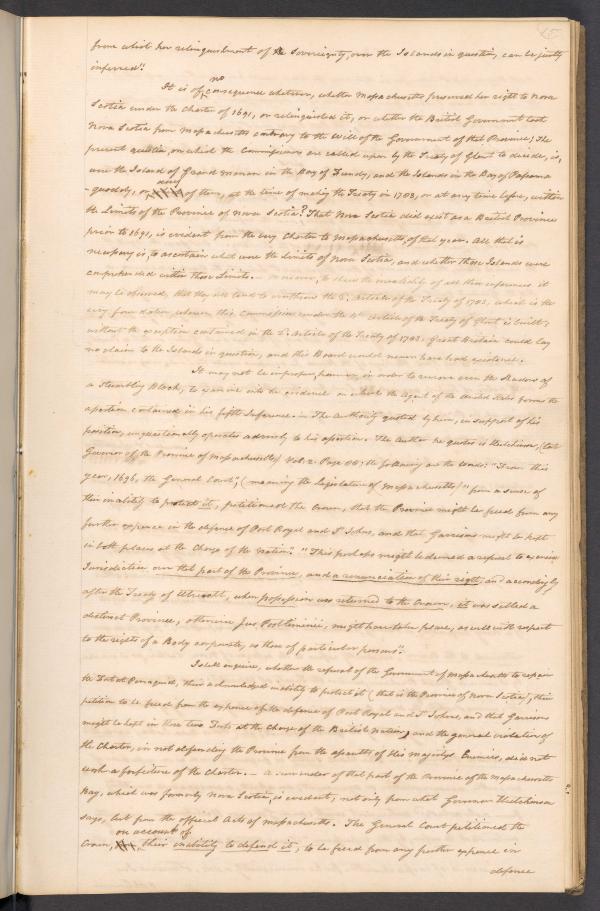 from which her relinquishment of the Sovereignty, over the Islands in question, can be justly
inferred."
It is of no consequence whatever, whether Massachusetts preserved her right to Nova
Scotia under the Charter of 1691, or relinquished it, or whether the British Government took
Nova Scotia from Massachusetts contrary to the will of the Government of that Province; The
present question, on which the Commissioners are called upon by the Treaty of Ghent to decide, is,
were the Island of Grand Manan in the Bay of Fundy, and the Islands in the Bay of Passama
=quoddy, or any of them, at the time of making the Treaty in 1783, or at any time before, within
the Limits of the Province of Nova Scotia? That Nova Scotia did exist as a British Province
prior to 1691, is evident from the very Charter to Massachusetts, of that year. All that is
necessary is, to ascertain what were the limits of Nova Scotia, and whether those Islands were
comprehended within those Limits. — to shew the invalidity of all these inferences it
may be observed, that they all tend to overthrow the 2d. Article of the Treaty of 1783, which is the
very foundation, whereon this Commission under the 4th Article of the Treaty of Ghent is built;
without the exception contained in the 2d. Article of the Treaty of 1783, Great Britain could lay
no claim to the Islands in question, and this Board would never have had existence.
It may not be improper, however, in order to remove even the Shadow of
a Stumbling Block, to examine into the evidence on which the Agent of the United States forms the
assertion contained in his fifth Inference. — The Authority quoted by him, in support of his
position, unquestionably operates adversely to his assertion. The Author he quotes is Hutchinson, (late
Governor of the Province of Massachusetts) Vol. 2. Page the following are the words: "From this
year, 1696, the General Court," (meaning the Legislature of Massachusetts) "from a sense of
their inability to protect it, petitioned the Crown, that the Province might be freed from any
further expence in the defence of Port Royal and St Johns, and that Garrisons might be kept
in both places at the Charge of the Nation." "This perhaps might be deemed a refusal to exercise
Jurisdiction over that part of the Province, and a renunciation of their right, and accordingly
after the Treaty of Utrecht, when possession was returned to the Crown, it was settled a
distinct Province, otherwise Jus Postliminii, might have taken place, as well with respect
to the rights of a Body corporate, as those of particular persons".
I shall enquire, whether the refusal of the Government of Massachusetts to repair
the Fort at Pemaquid, their acknowledged inability to protect it (that is the Province of Nova Scotia), their
petition to be freed from the expence of the defence of Port Royal and St Johns, and that Garrisons
might be kept in those two Forts at the Charge of the British Nation, and the general violation of
the Charter, in not defending the Province from the assaults of His Majestys Enemies, did not
work a forfeiture of the Charter. — a surrender of that part of the Province of the Massachusetts
Bay, which was formerly Nova Scotia, is evident, not only from what Governor Hutchinson
says, but from the official Acts of Massachusetts. The General Court petitioned the
Crown, on account of their inability to defend it, to be freed from any further expence in
defence